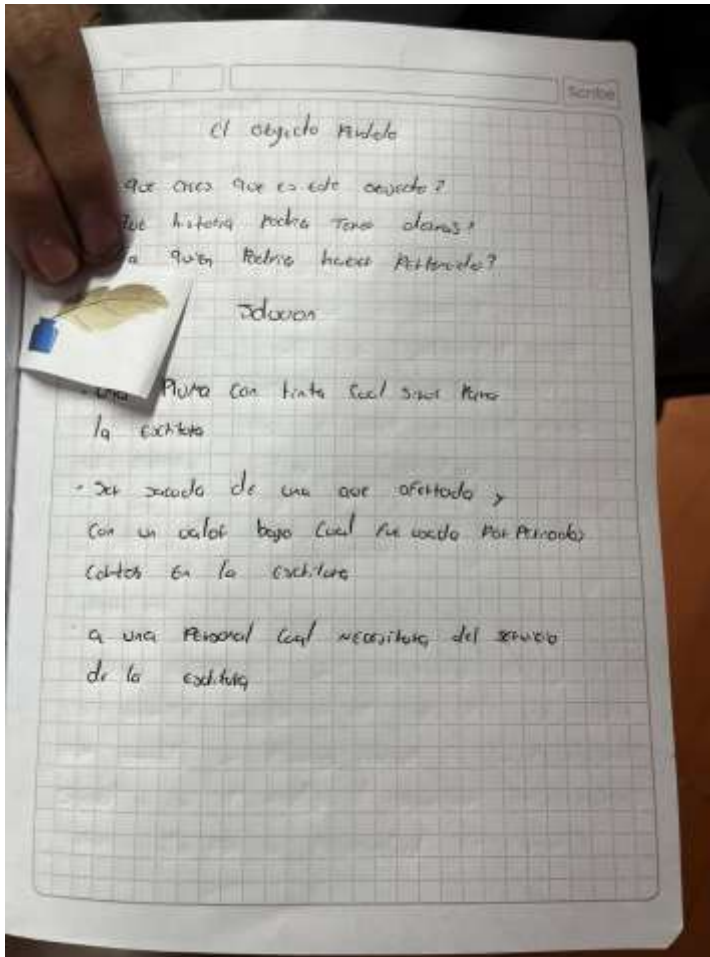 Scribe
El objecto Perdido
que crees que es este objecto?
Que historia Podria Tener detras?
a quien Podria haber Pertenecido?
Solucion
Pluma con tinta cual sirve Para
la escritura
- Ser sacada de una ave y
con un valor bajo cual fue usada Por Periodos
en la escritura
a una Personal cual necesitaba del servicio
de la escritura